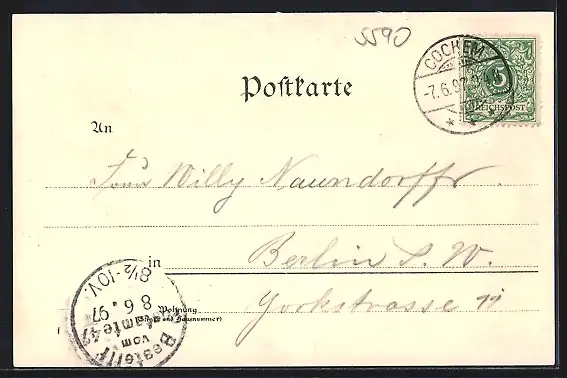 5590
COCHEM
-7.6.97
REICHSPOST
Postkarte
An
Willy Naundorff
in Berlin S. W.
Wohnung
(Straße und Hausnummer)
Yorkstrasse 11
Bestellt
vom
Postamte 47
8.6.97
8½-10V.